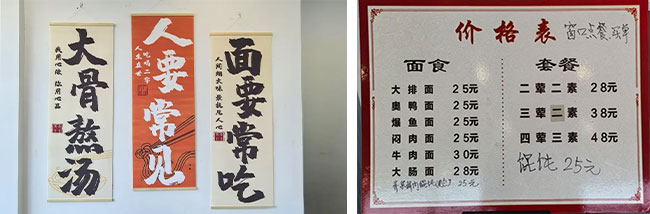 大骨熬汤
我用心做 您用心品
人要常见
吃喝二字
人生在世
面要常吃
人间烟火味 最抚凡人心
价格表 窗口点餐、买单
面食
大排面 25元
奥鸭面 25元
爆鱼面 25元
焖肉面 25元
牛肉面 30元
大肠面 28元
荠菜鲜肉馄饨 25元
套餐
二荤二素 28元
三荤二素 38元
四荤三素 48元
馄饨25元